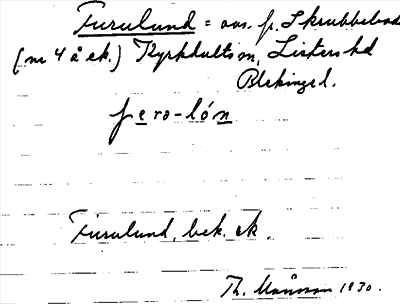 Furulund = avs. fr. Skrubbeboda
(nr 4 å ek.) Kyrkhults sn, Listers hd
Blekinge l.
fera-lón
Furulund, bek. ek.
Th. Månsson 1930.